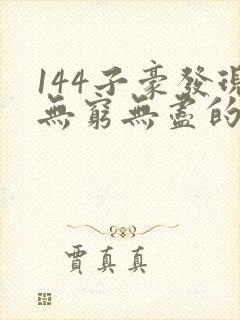 144子豪發現
無窮無盡的
賈真真